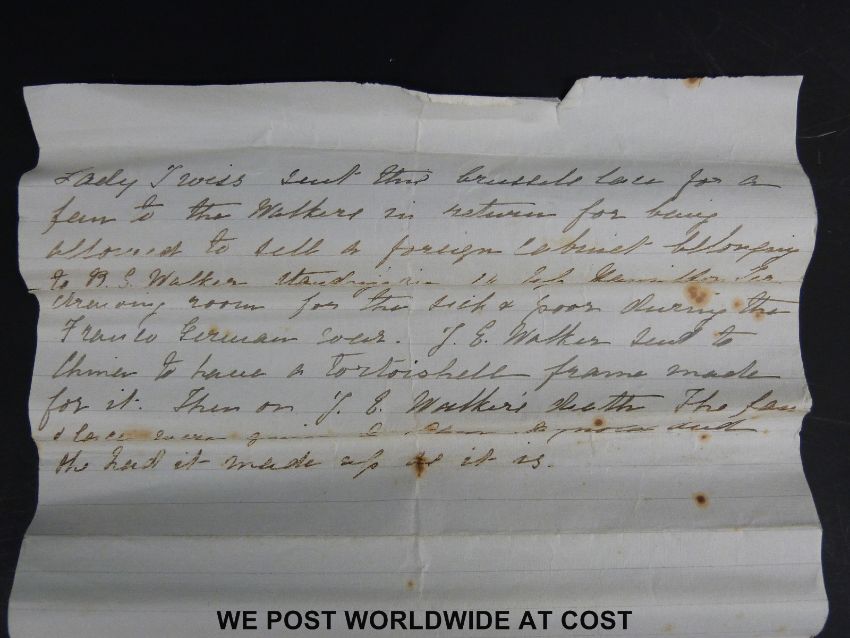 Lady Twiss sent this brussels lace for a
fan to the Walkers in return for being
allowed to sell a foreign cabinet belonging
to Walker standing in
drawing room for the sick & poor during the
Franco German war. J. E. Walker sent to
China to have a Tortoishell frame made
for it. Then on J. E. Walker's death The fan
& lace were and
she had it made up as it is.
WE POST WORLDWIDE AT COST